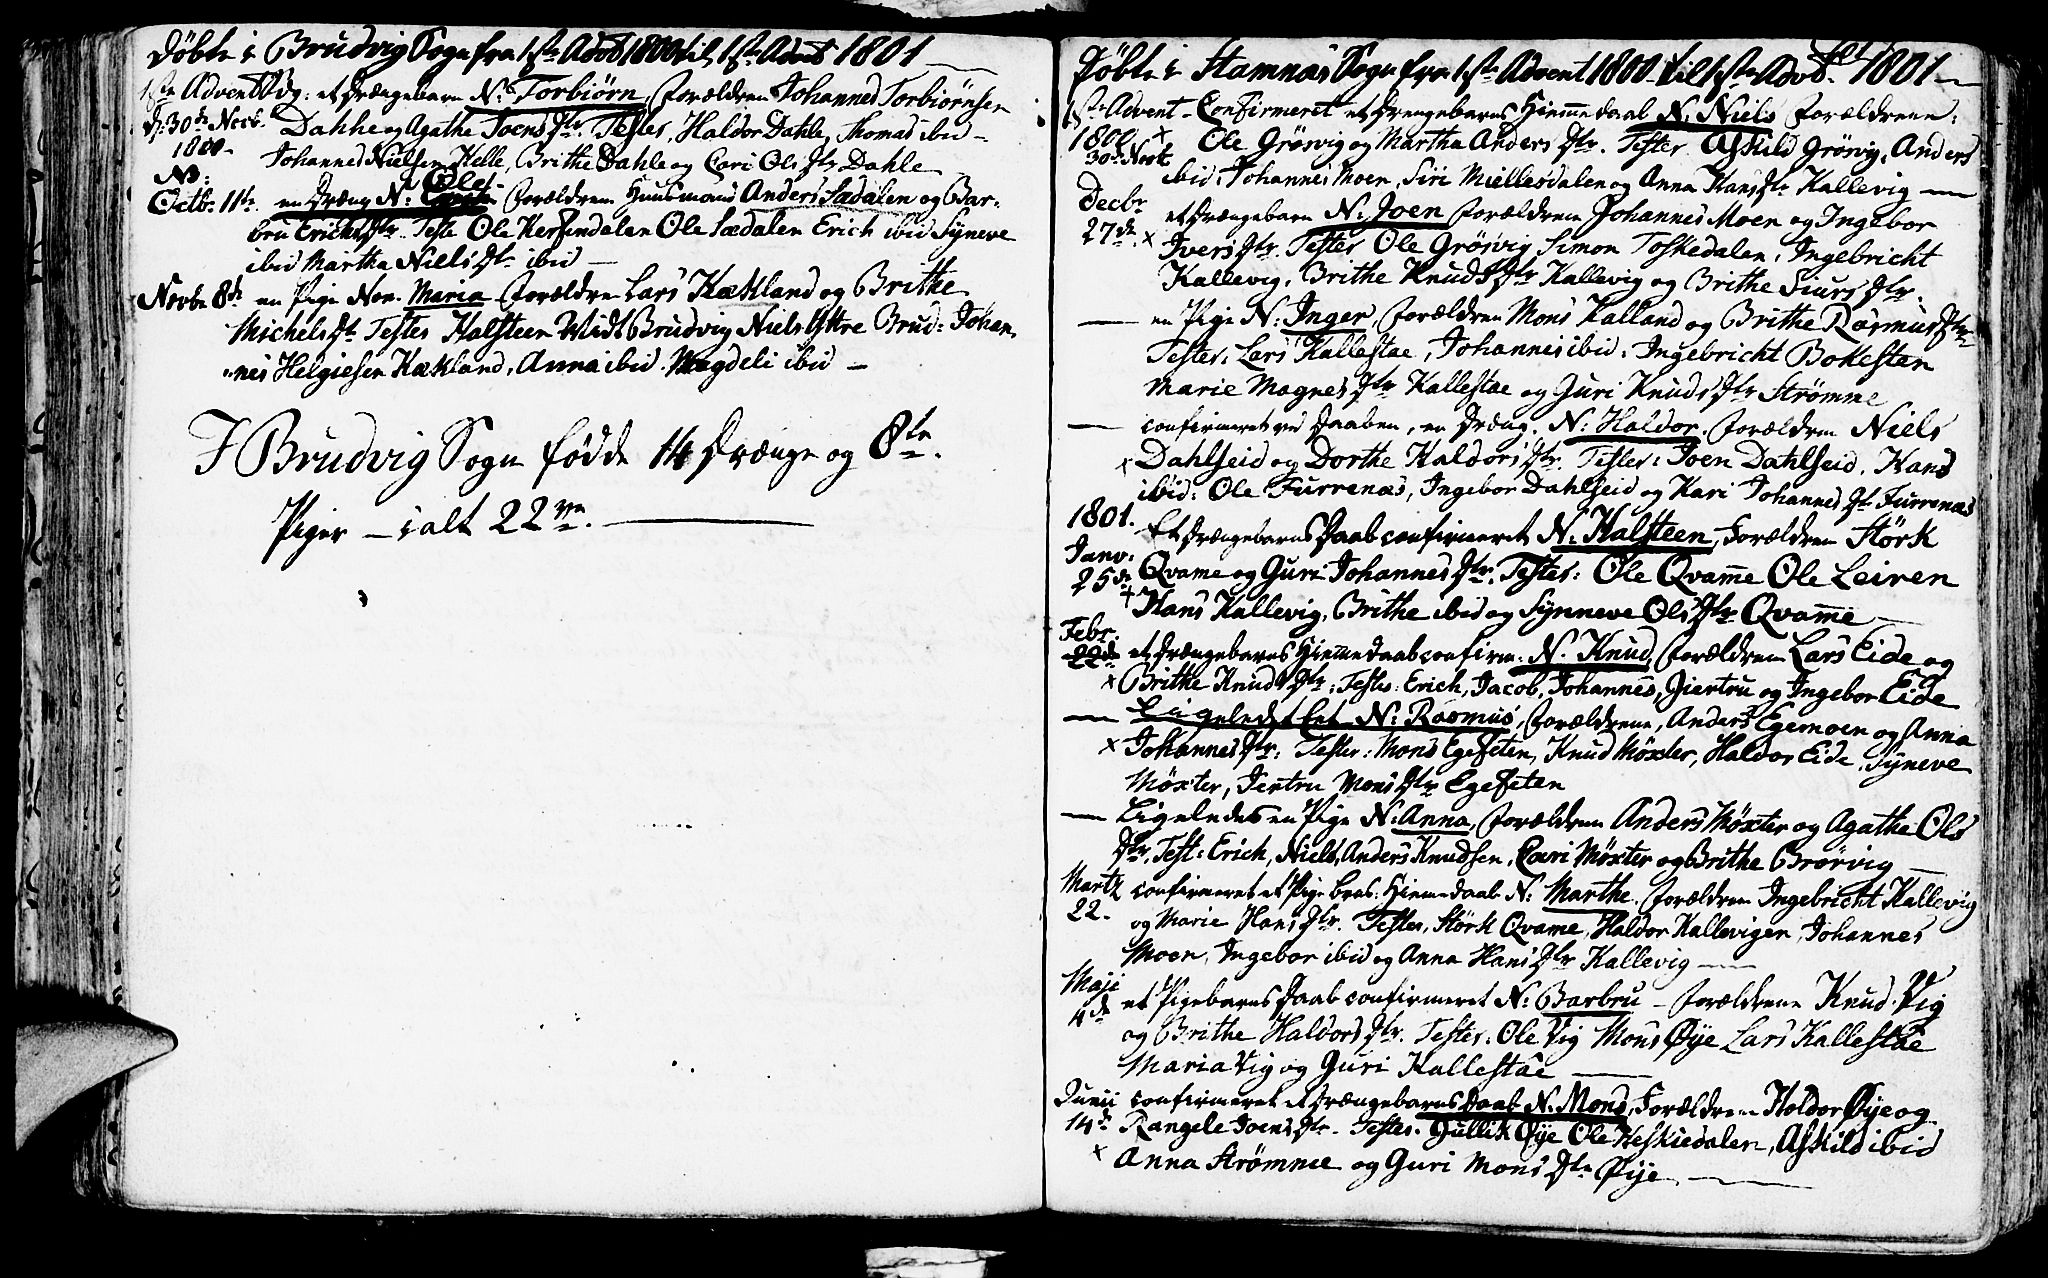 Døbte i Brudvig Sogn fra 1ste Advt 1800 til 1ste Advent 1801
1ste Advent Bdg: et Drængebarn N: Torbiørn, Forældren Johannes Torbiørnsen
D: 30de Novb. Dahle og Agathe Joens Dtr. Testes, Haldor Dahle, Thomas ibid
1800 Johannes Nielsen Helle, Brithe Dahle og Cari Ols Dtr Dahle
NB: Ole
Octbr 11te en Dræng N: Forældren Huusmand Anders Sædalen og Bar-
bru Erichs Dtr. Teste Ole Ole Sædalen Erich ibid Syneve
ibid Martha Niels Dtr ibid
Novbr 8de en Pige Nom. Maria Forældre Lars Kækland og Brithe
Michels Dtr Testes Halsteen Midt Brudvig Niels Yttre Brud: Johan
nes Helgiesen Kækland, Anna ibid Magdeli ibid
I Brudvig Sogn fødde 14 Drænge og 8te
Piger – ialt 22ve.
Døbte i Stamnæs Sogn fra 1ste Advent 1800 til 1ste Advt. 1801
1ste Advent Confirmeret et Drengebarns Hiemedaab N. Niels Forældrene:
1800 x Ole Grøsvig og Martha Anders Dtr. Testes Askild Grøsvig, Anders
30te Novb ibid: Johannes Moen, Siri Miellesdalen og Anna Hans Dtr Kallevig
Decbr et Drængebarn N. Joen Forældren Johannes Moen og Ingebor
27de x Ivers Dtr. Testes Ole Grøsvig Simon Toskedalen, Ingebricht
Kallevig, Brithe Knuds Dtr Kallevig og Brithe Siurs Dtr.
— en Pige N: Inger, Forældren Mons Kalland og Brithe Rasmus Dtr
Testes: Lars Kallestae, Johannes ibid, Ingebricht Bokesten
Marie Magnes Dtr Kallestae og Guri Knuds Dtr Strømme
— confirmeret ved Daaben, en Dræng. N: Haldor. Forældren Niels
x Dahlseid og Dorthe Haldors Dtr. Testes: Joen Dahlseid, Hans
ibid: Ole Furrenæs, Ingebor Dahlseid og Kari Johannes Dtr Furrenæs
1801. Et Drængebarns Daab confirmeret N: Halsteen, Forældren Størk
Janv: Qvame og Guri Johannes Dtr. Testes: Ole Qvame Ole Leiren
25de x Hans Kallevig, Brithe ibid og Synneve Ols Dtr Qvame
Febr.
22de et Drængebarns Hiemedaab confirm: N. Knud, Forældren Lars Eide og
x Brithe Knuds Dtr: Testes: Erich, Jacob, Johannes, Giertru og Ingebor Eide
— Ligeledes Et N: Rasmus, Forældrene, Anders Egemoen og Anna
x Johannes Dtr: Testes: Mons Egefeten, Knud Møxter, Haldor Eide, Syneve
Møxter, Jertru Mons Dtr Egefeten
— Ligeledes en Pige N: Anna, Forældren Anders Møxter og Agathe Ols
Dtr. Test: Erich, Niels, Anders Knudsen, Cari Møxter og Brithe Brørvig
Marty confirmeret et Pige Hiemedaab N: Marthe. Forældren Ingebricht Kallevig
22. og Marie Hans Dtr. Testes, Størk Qvame, Haldor Kallevigen, Johannes
Moen, Ingebor ibid og Anna Hans Dtr Kallevig
Maji et Pigebarns Daab confirmeret N: Barbru – Forældrene Knud Vig
4de og Brithe Haldors Dtr. Testes: Ole Vig Mons Øye Lars Kallestae
Maria Vig og Guri Kallestae
Junii confirmeret et Drængebarns Daab N. Mons, Forældren Holdor Øye og
14de Rangele Joens Dtr. Testes. Gullik Øye Ole Heskiedalen, Askild ibid
x Anna Strømme og Guri Mons Dtr Øye